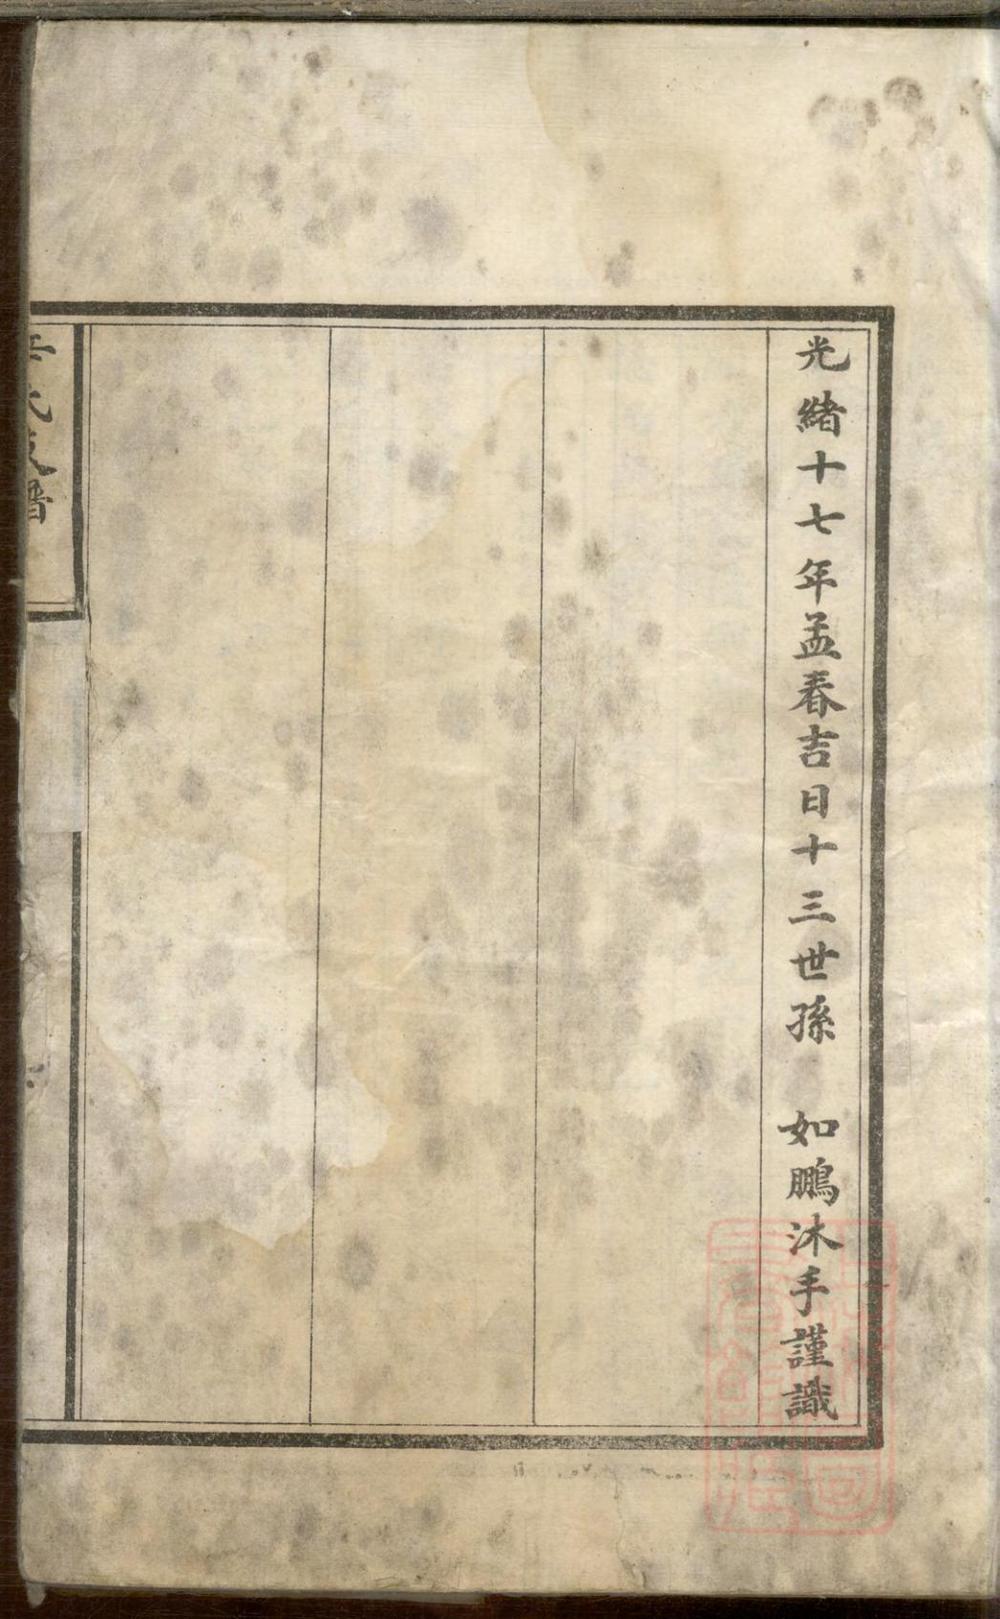 光緒十七年孟春吉日十三世孫　如鵬沐手謹識